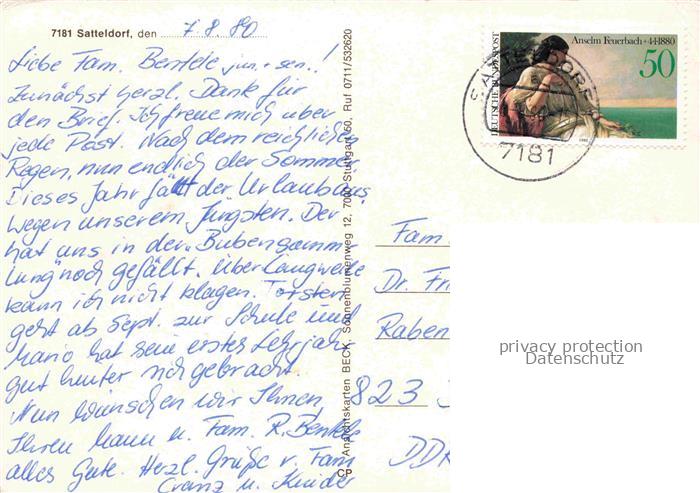 7181 Satteldorf, den 7.8.80
Liebe Fam. Bentele jun. + sen.!
Zunächst herzl. Dank für
den Brief. Ich freue mich über
jede Post. Nach dem reichlichen
Regen, nun endlich der Sommer.
Dieses Jahr fällt der Urlaub aus,
wegen unserem Jüngsten. Der
hat uns in der "Bubensamm-
lung" noch gefällt. Über Langweile
kann ich nicht klagen. Torsten
geht ab Sept. zur Schule und
Mario hat sein erstes Lehrjahr
gut hinter sich gebracht.
Nun wünschen wir Ihnen
Ihrem Mann u. Fam. R. Bentele
alles Gute. Herzl. Grüße v. Fam
Cranz u. Kinder
CP Ansichtskarten BECK, Sonnenblumenweg 12, 7000 Stuttgart 60, Ruf 0711/532620
Anselm Feuerbach + 4·1·1880
50
DEUTSCHE BUNDESPOST
SATTELDORF
7181
Fam.
Dr. Fr
Raben
823
DDR
privacy protection
Datenschutz